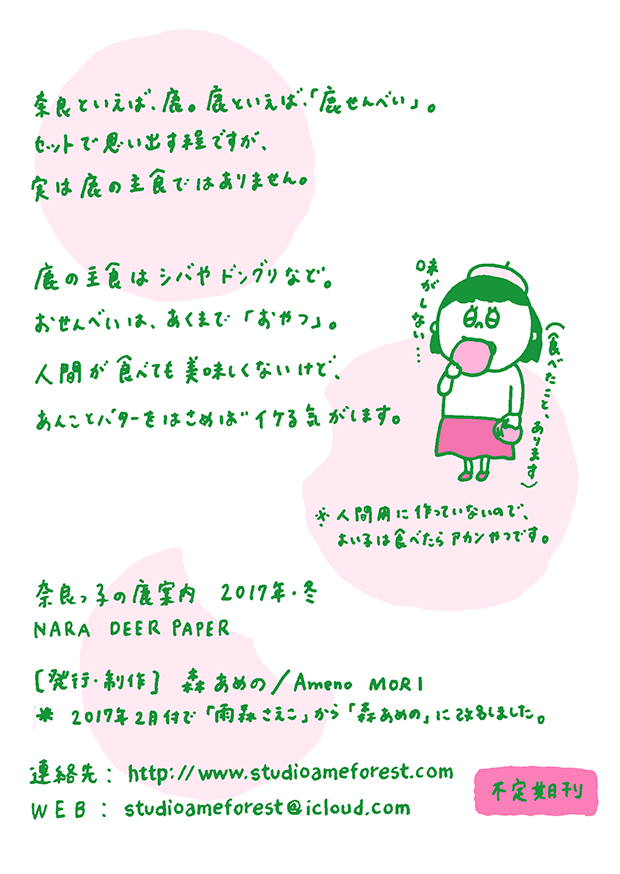 奈良といえば、鹿。鹿といえば、「鹿せんべい」。
セットで思い出す程ですが、
実は鹿の主食ではありません。
鹿の主食はシバやドングリなど。
おせんべいは、あくまで「おやつ」。
人間が食べても美味しくないけど、
あんことバターをはさめばイケる気がします。
味がしない…
(食べたこと、あります)
※人間用に作っていないので、
よい子は食べたらアカンやつです。
奈良っ子の鹿案内 2017年・冬
NARA DEER PAPER
[発行・制作] 森あめの/Ameno MORI
※ 2017年2月付で「雨森さえこ」から「森あめの」に改名しました。
連絡先: http://www.studioameforest.com
WEB: studioameforest@icloud.com
不定期刊